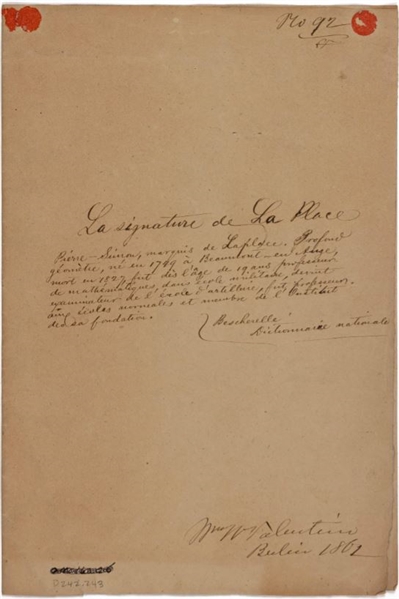 No 92
La signature de La Place
Pierre-Simon, marquis de Laplace. Profond
géomètre, né en 1749 à Beaumont-en-Auge,
mort en 1827, fut dès l'âge de 19 ans professeur
de mathématiques, dans école militaire, devint
examinateur de l'école d'artillerie, fut professeur
aux écoles normales et membre de l'Institut
des sa fondation.
Bescherelle
Dictionnaire nationale
Valentin
Berlin 1862
D242.743